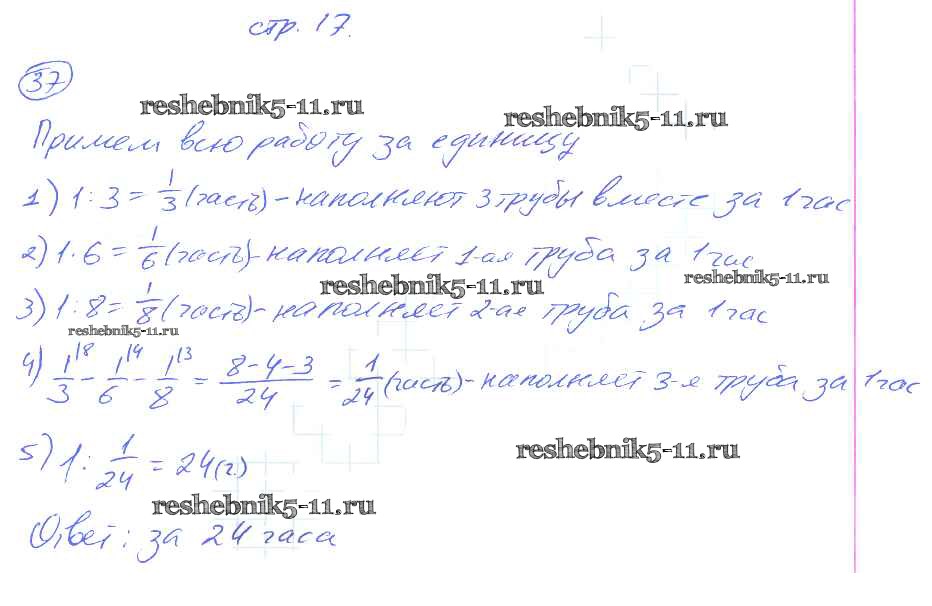 стр. 17.
37
reshebnik5-11.ru
reshebnik5-11.ru
Примем всю работу за единицу
1) 1 : 3 = 1/3 (часть) - наполняют 3 трубы вместе за 1 час
2) 1 · 6 = 1/6 (часть) - наполняет 1-ая труба за 1 час
reshebnik5-11.ru
reshebnik5-11.ru
3) 1 : 8 = 1/8 (часть) - наполняет 2-ая труба за 1 час
reshebnik5-11.ru
4) 1/3 |8 - 1/6 |4 - 1/8 |3 = 8-4-3/24 = 1/24 (часть) - наполняет 3-я труба за 1 час
reshebnik5-11.ru
5) 1 : 1/24 = 24 (ч.)
reshebnik5-11.ru
Ответ: за 24 часа